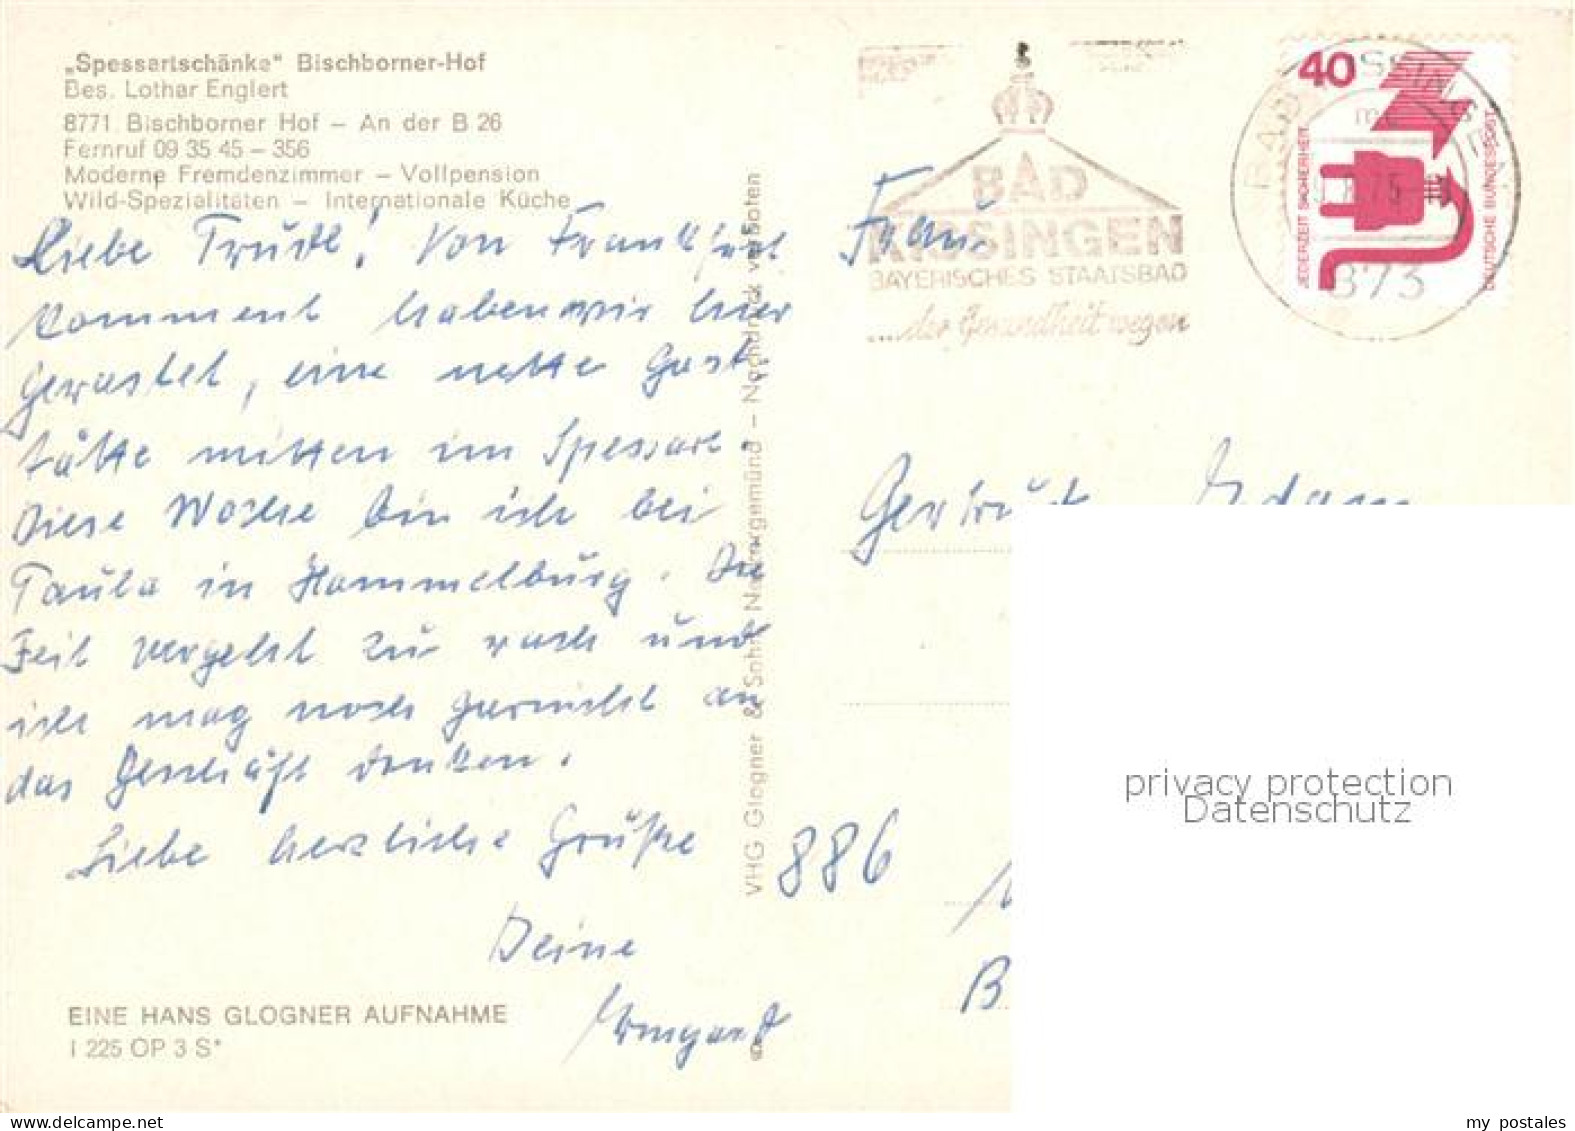 „Spessartschänke" Bischborner-Hof
Bes. Lothar Englert
8771 Bischborner Hof – An der B 26
Fernruf 09 35 45 – 356
Moderne Fremdenzimmer – Vollpension
Wild-Spezialitäten – Internationale Küche
Liebe Trudl! Von Frankfurt
kommend haben wir hier
gerastet, eine nette Gast,
tätte mitten im Spessart.
Diese Woche bin ich bei
Paula in Hammelburg. Die
Zeit vergeht zu rasch und
ich mag noch garnicht an
das Geschäft denken.
Liebe herzliche Grüße
Deine
Irmgard
EINE HANS GLOGNER AUFNAHME
I 225 OP 3 S*
VHG Glogner & Sohn Neckargemünd – Nachdruck verboten
BAD
KISSINGEN
BAYERISCHES STAATSBAD
...der Gesundheit wegen
40
JEDERZEIT SICHERHEIT
DEUTSCHE BUNDESPOST
BAD KISSINGEN
873
Frau
Gertrud Adam
886
B
privacy protection
Datenschutz
my postales
www.delcampe.net